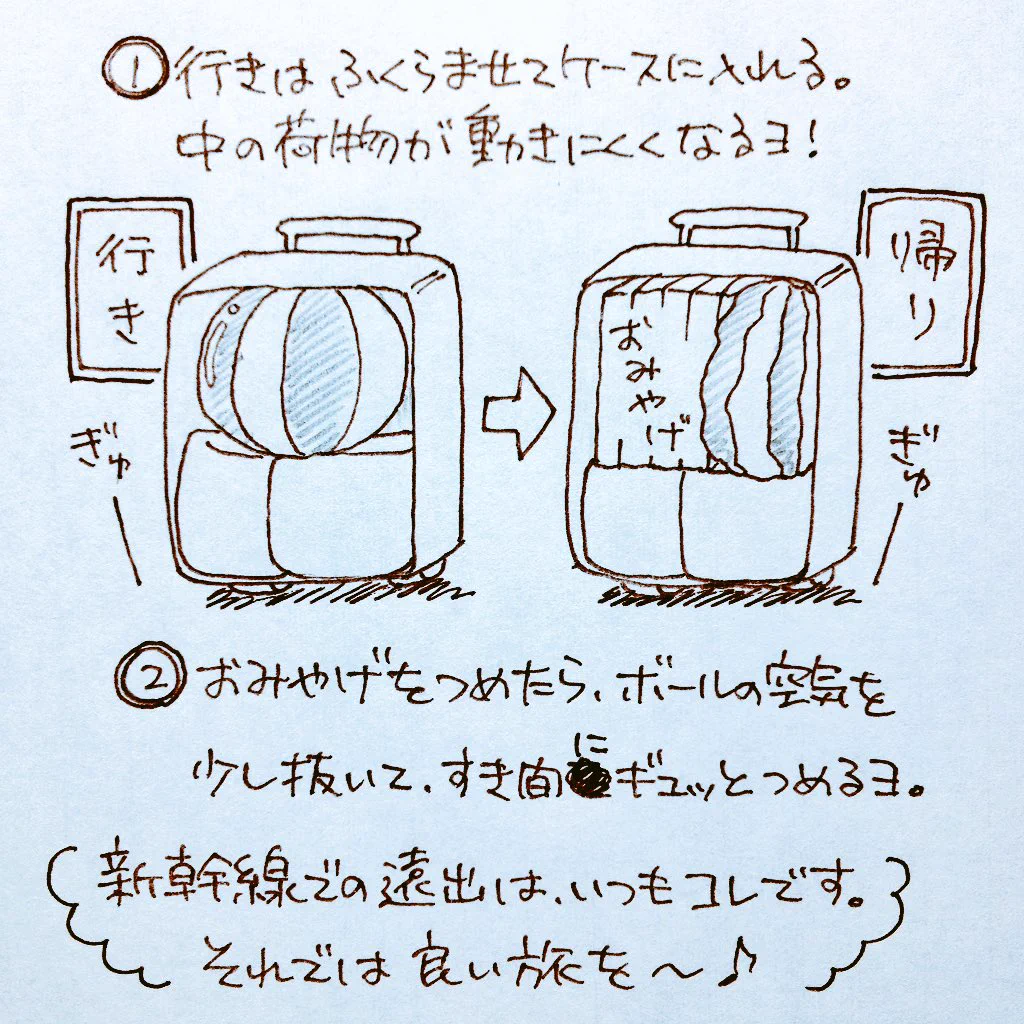 ① 行きはふくらませてケースに入れる。
中の荷物が動きにくくなるヨ！
行き
帰り
おみやげ
ぎゅ
ぎゅ
② おみやげをつめたら、ボールの空気を
少し抜いて、すき間にギュッとつめるヨ。
新幹線での遠出は、いつもコレです。
それでは良い旅を〜♪